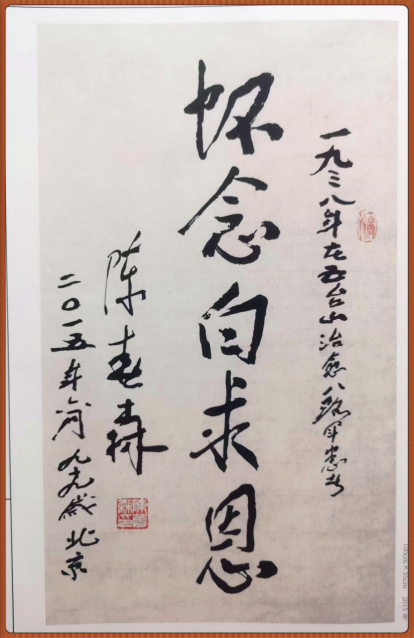 一九三八年在五台山治愈八路军患者
怀念白求恩
陈春森
二〇一五年六月九十九岁北京